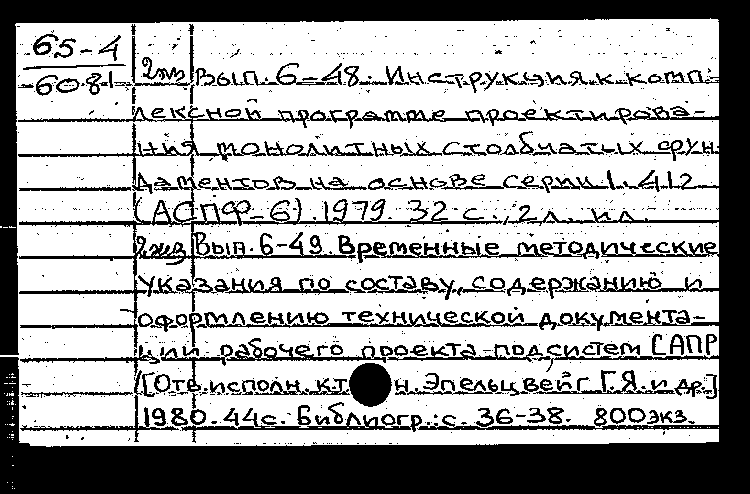 65-4
6081
2экз Вып. 6-48. Инструкция к комп-
лексной программе проектирова-
ния монолитных столбчатых фун
даментов на основе серии 1.412
(АСПФ-6). 1979. 32 с., 2 л. ил.
2экз Вып. 6-49. Временные методические
указания по составу, содержанию и
оформлению технической документа-
ции рабочего проекта подсистем САПР
/[Отв. исполн. к.т н. Эпельцвейг Г.Я. и др.]
1980. 44с. Библиогр.: с. 36-38. 800экз.